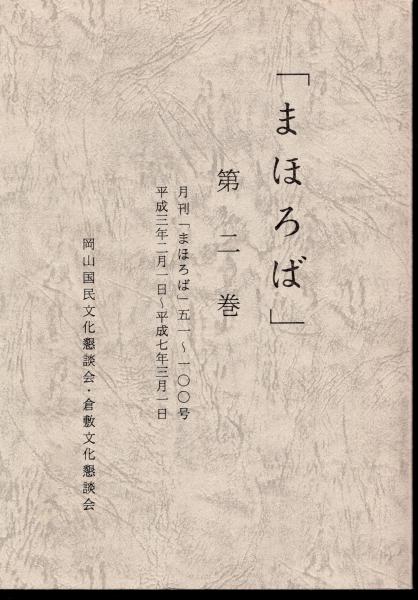 「まほろば」
第二巻
月刊「まほろば」五一～一〇〇号
平成三年二月一日～平成七年三月一日
岡山国民文化懇談会・倉敷文化懇談会